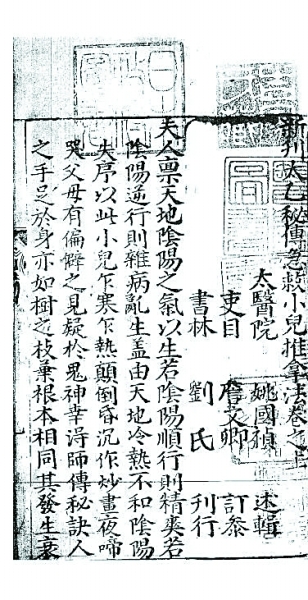 新刊太乙秘傳急救小兒推拏法卷之上
太醫院 姚國禎 述輯
吏目 詹文卿 訂叅
書林 劉氏 刊行
夫人禀天地陰陽之氣以生若陰陽順行則精爽若
陰陽逆行則雜病亂生盖由天地冷熱不和陰陽
失序以此小兒乍寒乍熱顛倒昏沉作炒晝夜啼
哭父母有偏僻之見疑於鬼神幸得師傳秘訣人
之手足於身亦如樹之枝葉根本相同其發生衰